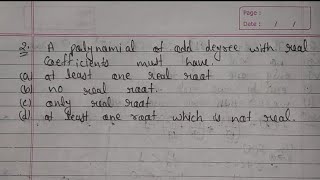 Page :
Date : / /
2. A polynamial of odd degree with real
coefficients must have.
(a) at least one real root
(b) no real root.
(c) only real root
(d) at least one root which is not real.